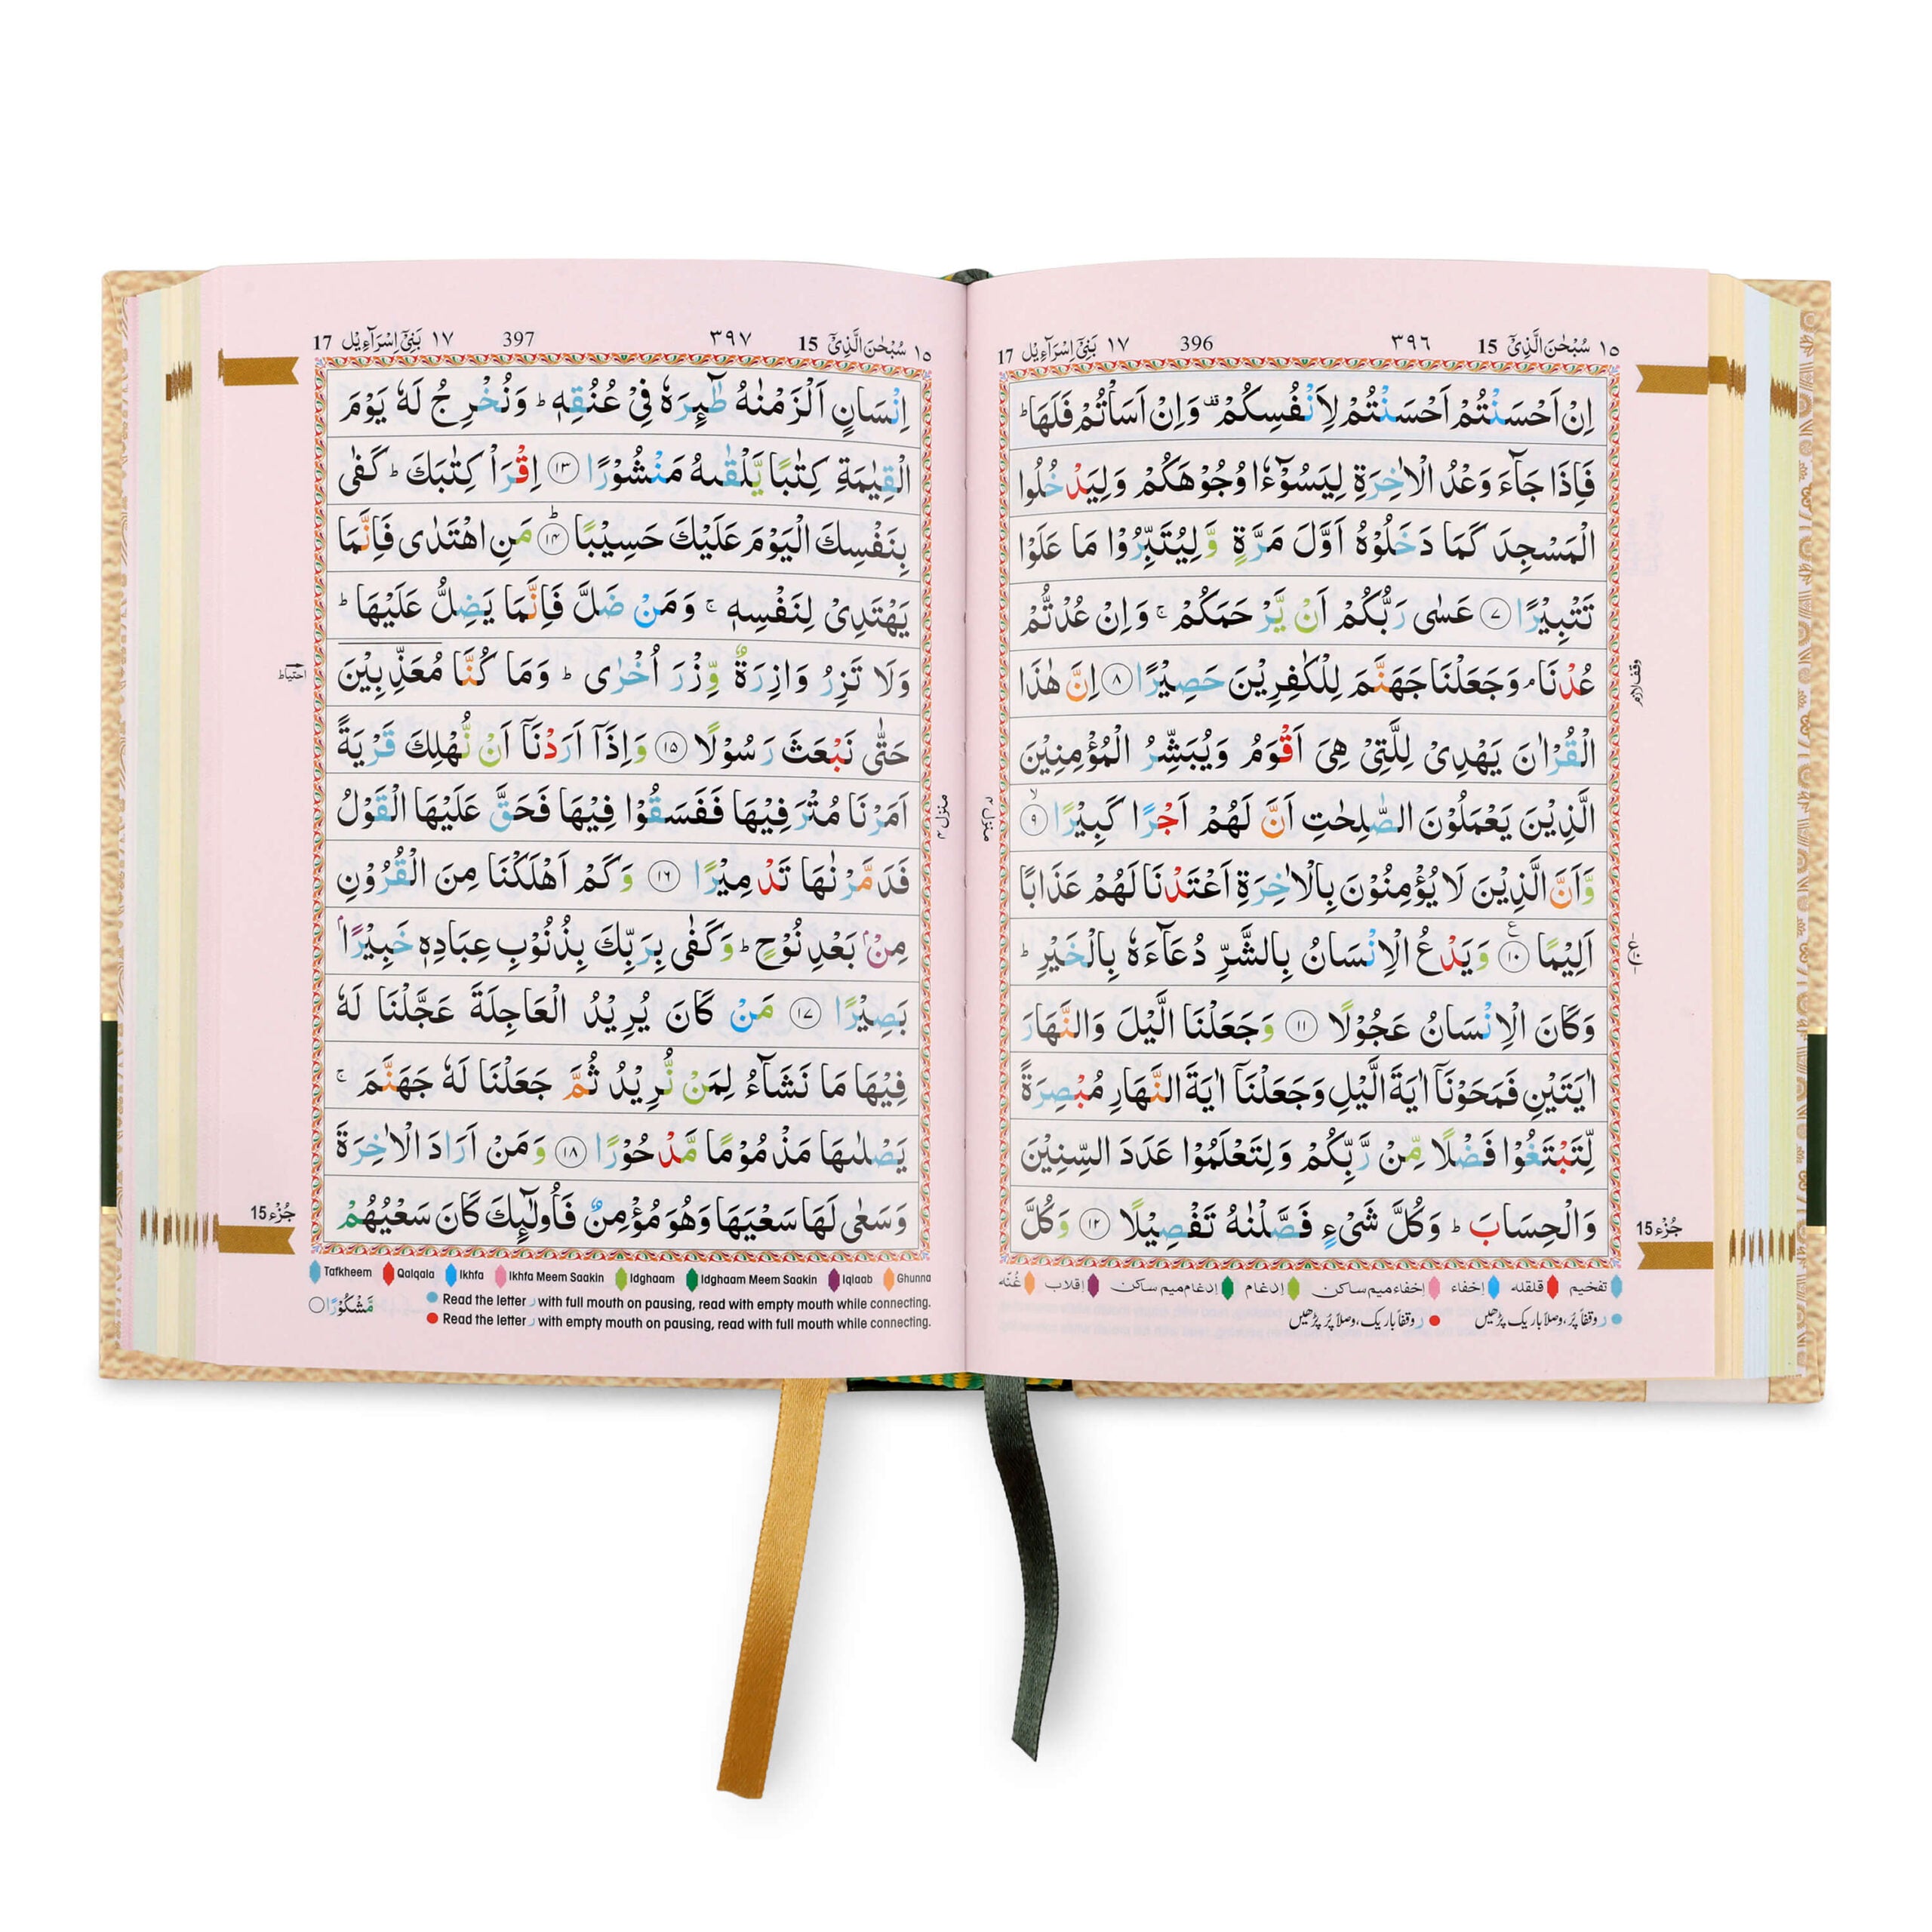 ١٥ سُبْحٰنَ الَّذِیْۤ 15 ٣٩٦ 396 ١٧ بَنِیْۤ اِسْرَآءِیْل 17
اِنْ اَحْسَنْتُمْ اَحْسَنْتُمْ لِاَنْفُسِكُمْ ۫ وَاِنْ اَسَاْتُمْ فَلَهَا ؕ
فَاِذَا جَآءَ وَعْدُ الْاٰخِرَةِ لِیَسُوْٓءٗا وُجُوْهَكُمْ وَلِیَدْخُلُوا
الْمَسْجِدَ كَمَا دَخَلُوْهُ اَوَّلَ مَرَّةٍ وَّلِیُتَبِّرُوْا مَا عَلَوْا
تَتْبِیْرًا ٧ عَسٰی رَبُّكُمْ اَنْ یَّرْحَمَكُمْ ۚ وَاِنْ عُدْتُّمْ
عُدْنَا ۘ وَجَعَلْنَا جَهَنَّمَ لِلْكٰفِرِیْنَ حَصِیْرًا ٨ اِنَّ هٰذَا
وقف لازم
الْقُرْاٰنَ یَهْدِیْ لِلَّتِیْ هِیَ اَقْوَمُ وَیُبَشِّرُ الْمُؤْمِنِیْنَ
الَّذِیْنَ یَعْمَلُوْنَ الصّٰلِحٰتِ اَنَّ لَهُمْ اَجْرًا كَبِیْرًا ٩ ۙ
منزل ٤
وَّاَنَّ الَّذِیْنَ لَا یُؤْمِنُوْنَ بِالْاٰخِرَةِ اَعْتَدْنَا لَهُمْ عَذَابًا
اَلِیْمًا ١٠ ع وَیَدْعُ الْاِنْسَانُ بِالشَّرِّ دُعَآءَهٗ بِالْخَیْرِ ؕ
وَكَانَ الْاِنْسَانُ عَجُوْلًا ١١ وَجَعَلْنَا الَّیْلَ وَالنَّهَارَ
اٰیَتَیْنِ فَمَحَوْنَاۤ اٰیَةَ الَّیْلِ وَجَعَلْنَاۤ اٰیَةَ النَّهَارِ مُبْصِرَةً
لِّتَبْتَغُوْا فَضْلًا مِّنْ رَّبِّكُمْ وَلِتَعْلَمُوْا عَدَدَ السِّنِیْنَ
وَالْحِسَابَ ؕ وَكُلَّ شَیْءٍ فَصَّلْنٰهُ تَفْصِیْلًا ١٢ وَكُلَّ
جُزْء 15
تفخیم قلقله إخفاء إخفاءمیم ساکن إدغام إدغام میم ساکن إقلاب غُنّه
ر وقفاً پُر، وصلاً باریک پڑھیں ر وقفاً باریک، وصلاً پُر پڑھیں
١٥ سُبْحٰنَ الَّذِیْۤ 15 ٣٩٧ 397 ١٧ بَنِیْۤ اِسْرَآءِیْل 17
اِنْسَانٍ اَلْزَمْنٰهُ طٰٓىِٕرَهٗ فِیْ عُنُقِهٖ ؕ وَنُخْرِجُ لَهٗ یَوْمَ
الْقِیٰمَةِ كِتٰبًا یَّلْقٰىهُ مَنْشُوْرًا ١٣ اِقْرَاْ كِتٰبَكَ ؕ كَفٰی
بِنَفْسِكَ الْیَوْمَ عَلَیْكَ حَسِیْبًا ١٤ ؕ مَنِ اهْتَدٰی فَاِنَّمَا
یَهْتَدِیْ لِنَفْسِهٖ ۚ وَمَنْ ضَلَّ فَاِنَّمَا یَضِلُّ عَلَیْهَا ؕ
وَلَا تَزِرُ وَازِرَةٌ وِّزْرَ اُخْرٰی ؕ وَمَا كُنَّا مُعَذِّبِیْنَ
احتیاط
حَتّٰی نَبْعَثَ رَسُوْلًا ١٥ وَاِذَاۤ اَرَدْنَاۤ اَنْ نُّهْلِكَ قَرْیَةً
اَمَرْنَا مُتْرَفِیْهَا فَفَسَقُوْا فِیْهَا فَحَقَّ عَلَیْهَا الْقَوْلُ
منزل ٤
فَدَمَّرْنٰهَا تَدْمِیْرًا ١٦ وَكَمْ اَهْلَكْنَا مِنَ الْقُرُوْنِ
مِنْۢ بَعْدِ نُوْحٍ ؕ وَكَفٰی بِرَبِّكَ بِذُنُوْبِ عِبَادِهٖ خَبِیْرًۢا
بَصِیْرًا ١٧ مَنْ كَانَ یُرِیْدُ الْعَاجِلَةَ عَجَّلْنَا لَهٗ
فِیْهَا مَا نَشَآءُ لِمَنْ نُّرِیْدُ ثُمَّ جَعَلْنَا لَهٗ جَهَنَّمَ ۚ
یَصْلٰىهَا مَذْمُوْمًا مَّدْحُوْرًا ١٨ وَمَنْ اَرَادَ الْاٰخِرَةَ
وَسَعٰی لَهَا سَعْیَهَا وَهُوَ مُؤْمِنٌ فَاُولٰٓىِٕكَ كَانَ سَعْیُهُمْ
جُزْء 15
Tafkheem Qalqala Ikhfa Ikhfa Meem Saakin Idghaam Idghaam Meem Saakin Iqlaab Ghunna
Read the letter ر with full mouth on pausing, read with empty mouth while connecting.
مَّشْكُوْرًا
Read the letter ر with empty mouth on pausing, read with full mouth while connecting.